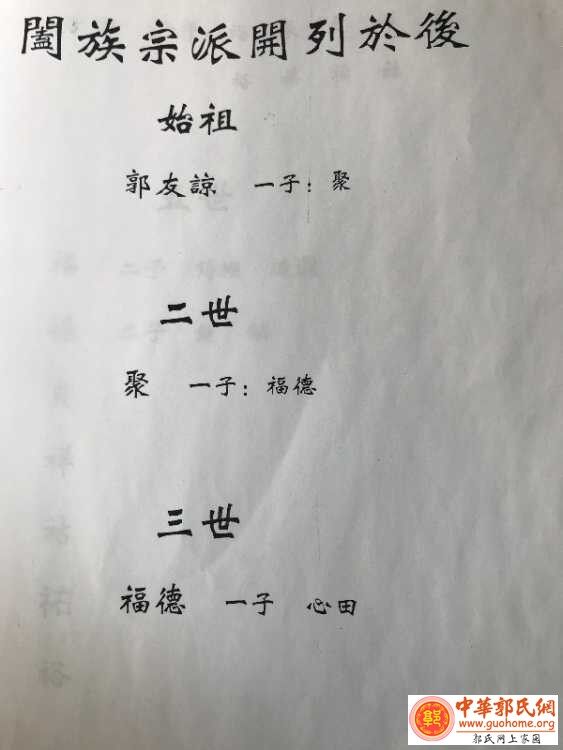 闔族宗派開列於後
始祖
郭友諒 一子：聚
二世
聚 一子：福德
三世
福德 一子 心田
中華郭氏網
www.guohome.org
郭氏网上家园